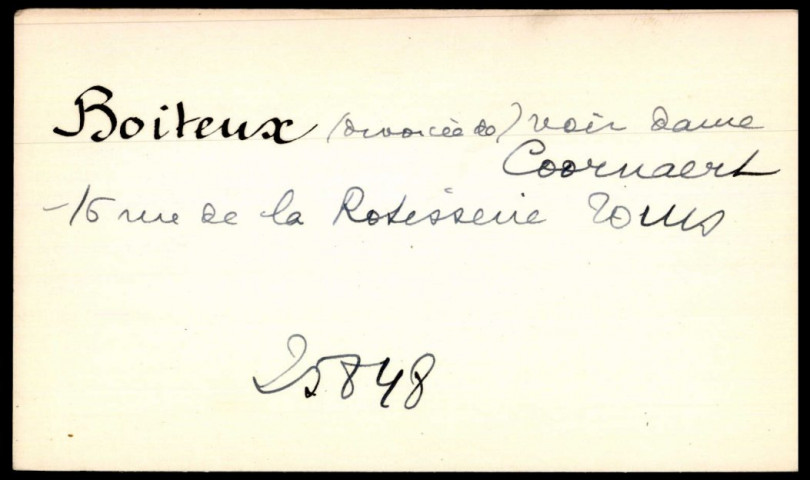 Boiteux (divorcée de) voir dame
Coornaert
15 rue de la Rotisserie Tours
25848